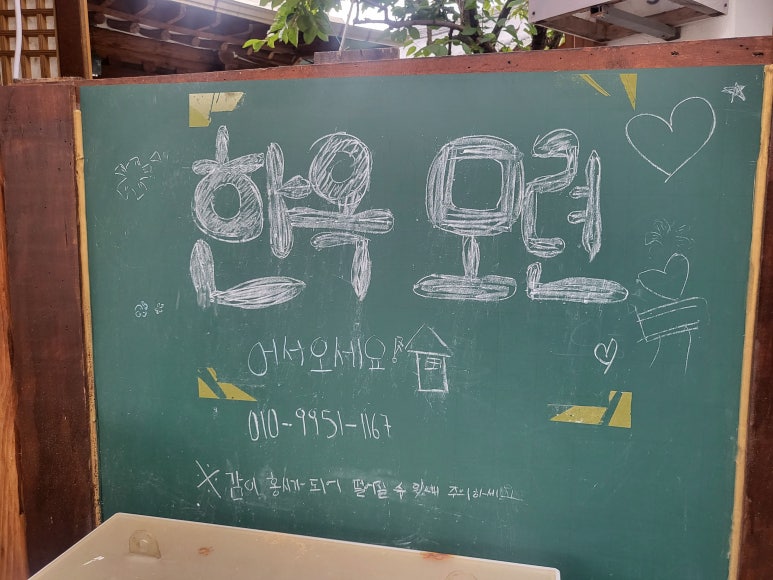 한옥 모련
어서오세요
010-9951-1167
※ 감이 홍시가 되어 떨어질 수 주의하세요